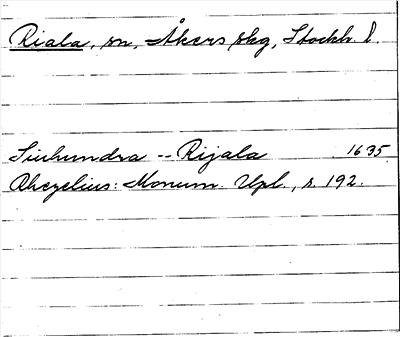 Riala, sn, Åkers skg, Stockh. l.
Siuhundra -- Rijala 1635
Rhezelius: Monum. Upl., s. 192.